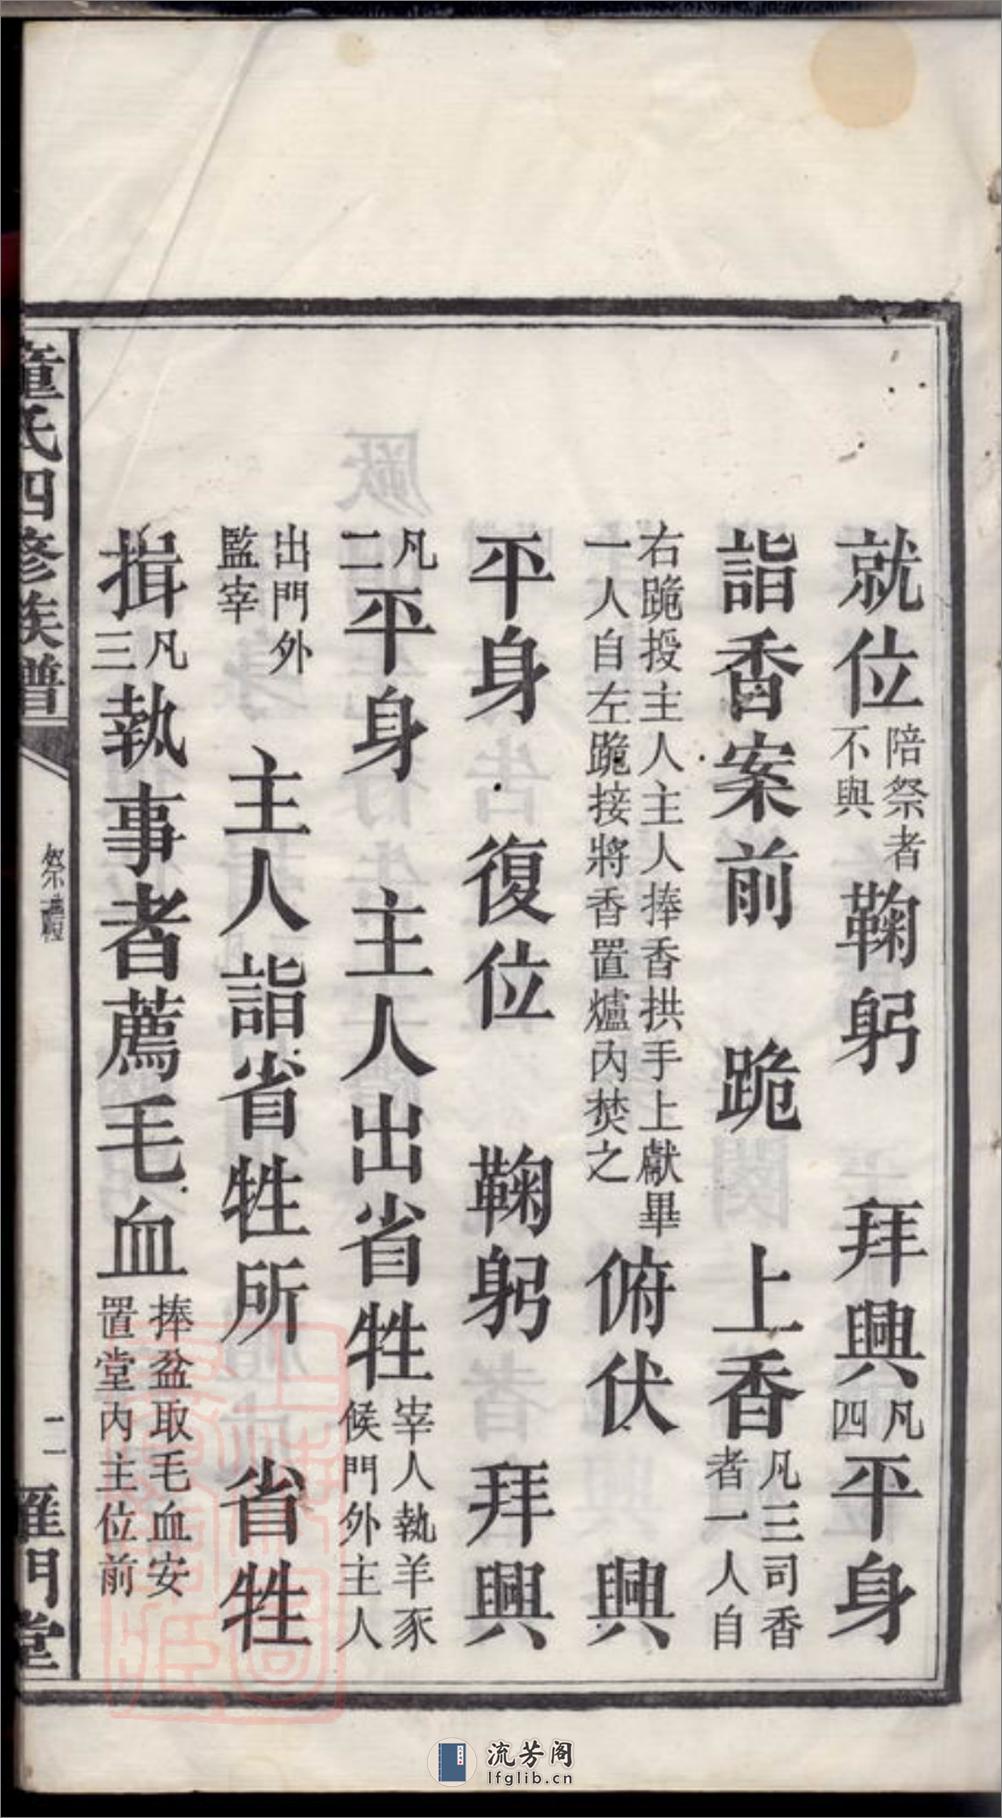 就位陪祭者不與鞠躬　拜興凡四平身
詣香案前　跪　上香凡三司香者一人自
右跪授主人主人捧香拱手上獻畢一人自左跪接將香置爐內焚之俯伏　興
平身　復位　鞠躬　拜興
凡二平身　主人出省牲宰人執羊豕候門外主人
出門外監宰　主人詣省牲所　省牲
揖凡三執事者薦毛血捧盆取毛血安置堂內主位前
童氏四修族譜
祭禮
二
雁門堂
流芳阁
lfglib.cn